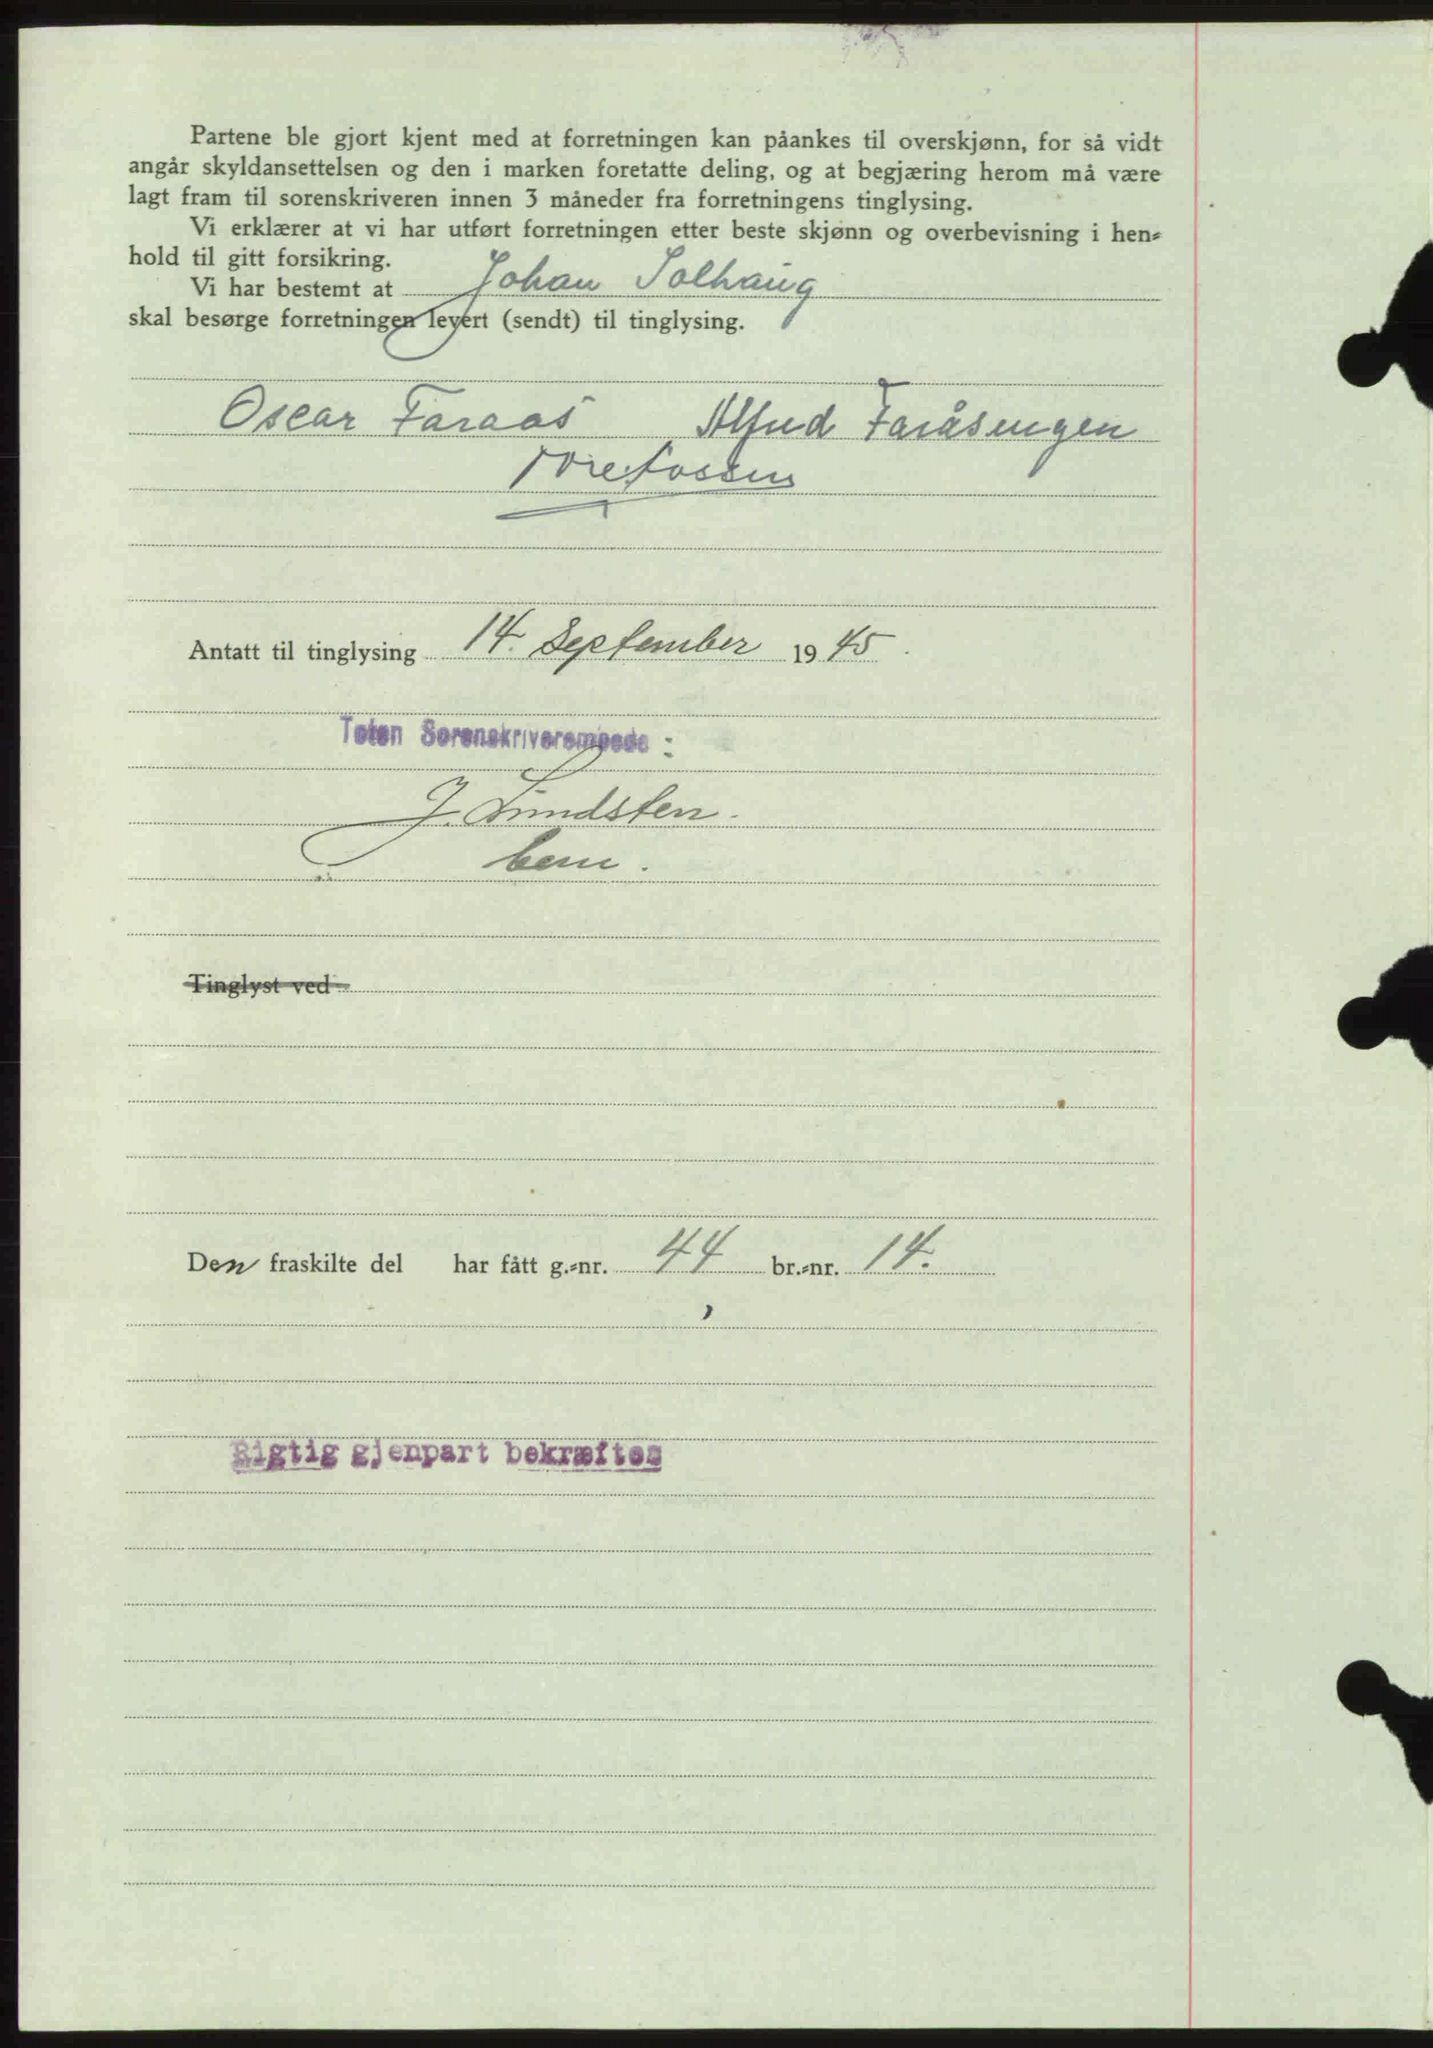 Partene ble gjort kjent med at forretningen kan påankes til overskjønn, for så vidt
angår skyldansettelsen og den i marken foretatte deling, og at begjæring herom må være
lagt fram til sorenskriveren innen 3 måneder fra forretningens tinglysing.
Vi erklærer at vi har utført forretningen etter beste skjønn og overbevisning i hen-
hold til gitt forsikring.
Vi har bestemt at Johan Solhaug
skal besørge forretningen levert (sendt) til tinglysing.
Oscar Faraas Alfred Faråsengen
Antatt til tinglysing 14. September 1945.
Toten Sorenskriverembede:
J. Lundsten.
Tinglyst ved
Den fraskilte del har fått g.-nr. 44 br.-nr. 14.
Rigtig gjenpart bekræftes